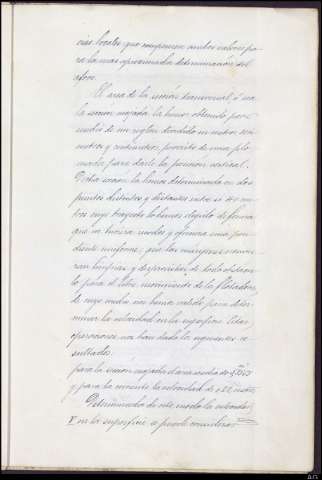 cias locales que componen ambos valores pa
ra la mas aproximada determinacion del
aforo.
El area de la sección transversal ó sea
la sección mojada la hemos obtenido por
medio de un reglon dividido en metros decí
metros y centimetros, provisto de una plo
mada para darle la posicion vertical.
Dicha sección la hemos determinada en dos
puntos distintos y distantes entre si 40 me
tros cuyo trayecto lo hemos elegido de forma
que no tuviera recodos y ofreciera una pen
diente uniforme, que las márgenes estuvie
ran limpias y desprovistas de todo obstácu
lo para el libre movimiento de los flotadores,
de cuyo medio nos hemos valido para deter
minar la velocidad en la superficie. Estas
operaciones nos han dado los siguientes re
sultados:
para la sección mojada el area media de
y para la corriente la velocidad de
Determinada de este modo la velocidad
V en la superficie se puede considerar